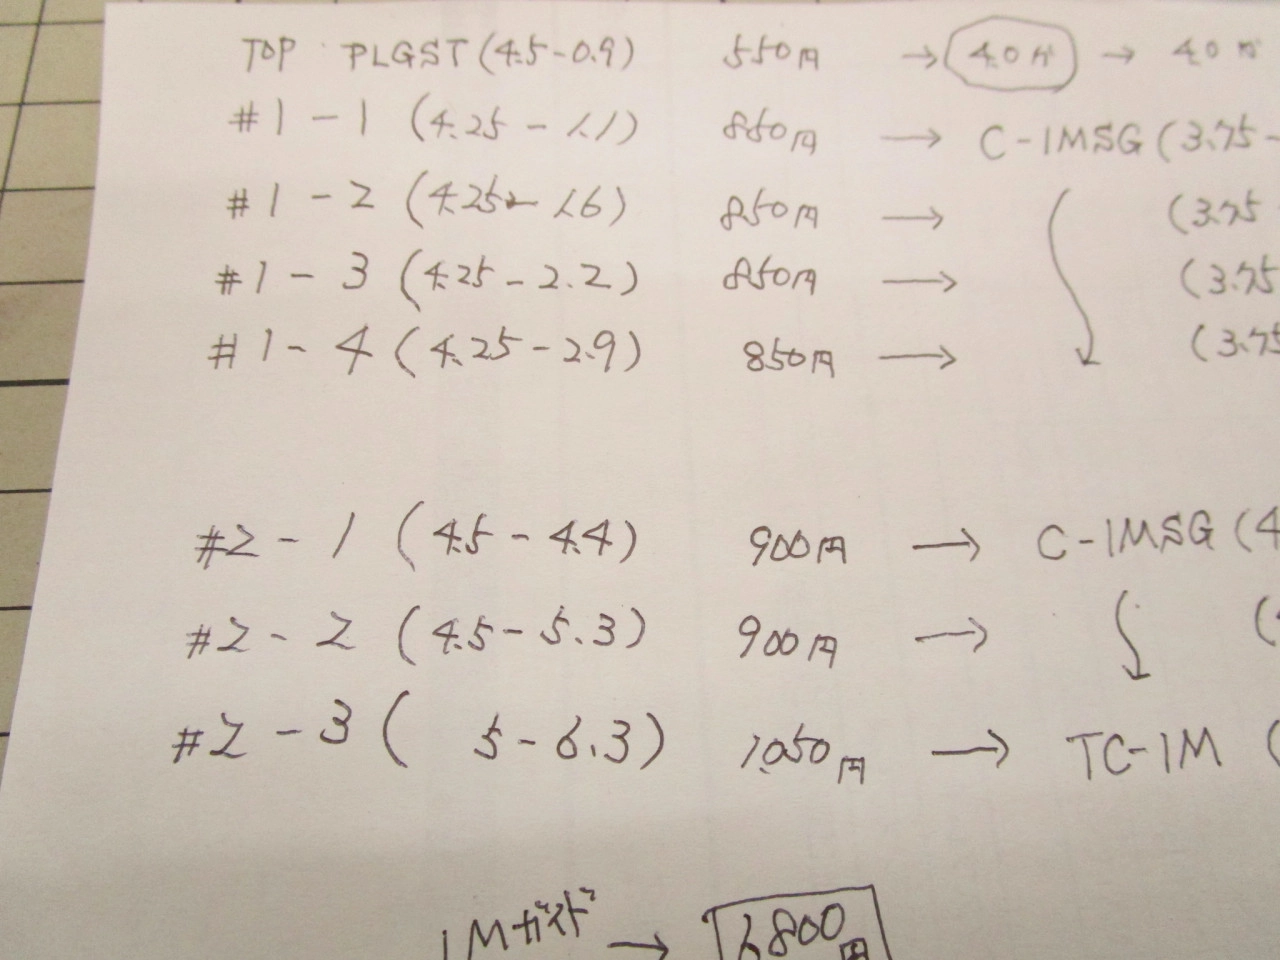 TOP PLGST (4.5-0.9) 550円 → 4.0 → 4.0
#1-1 (4.25-1.1) 850円 → C-IMSG (3.75-
#1-2 (4.25-1.6) 850円 → (3.75-
#1-3 (4.25-2.2) 850円 → (3.75
#1-4 (4.25-2.9) 850円 → (3.75
#2-1 (4.5-4.4) 900円 → C-IMSG (4
#2-2 (4.5-5.3) 900円 → (
#2-3 (5-6.3) 1,050円 → TC-IM (
IMガイド → 6800円